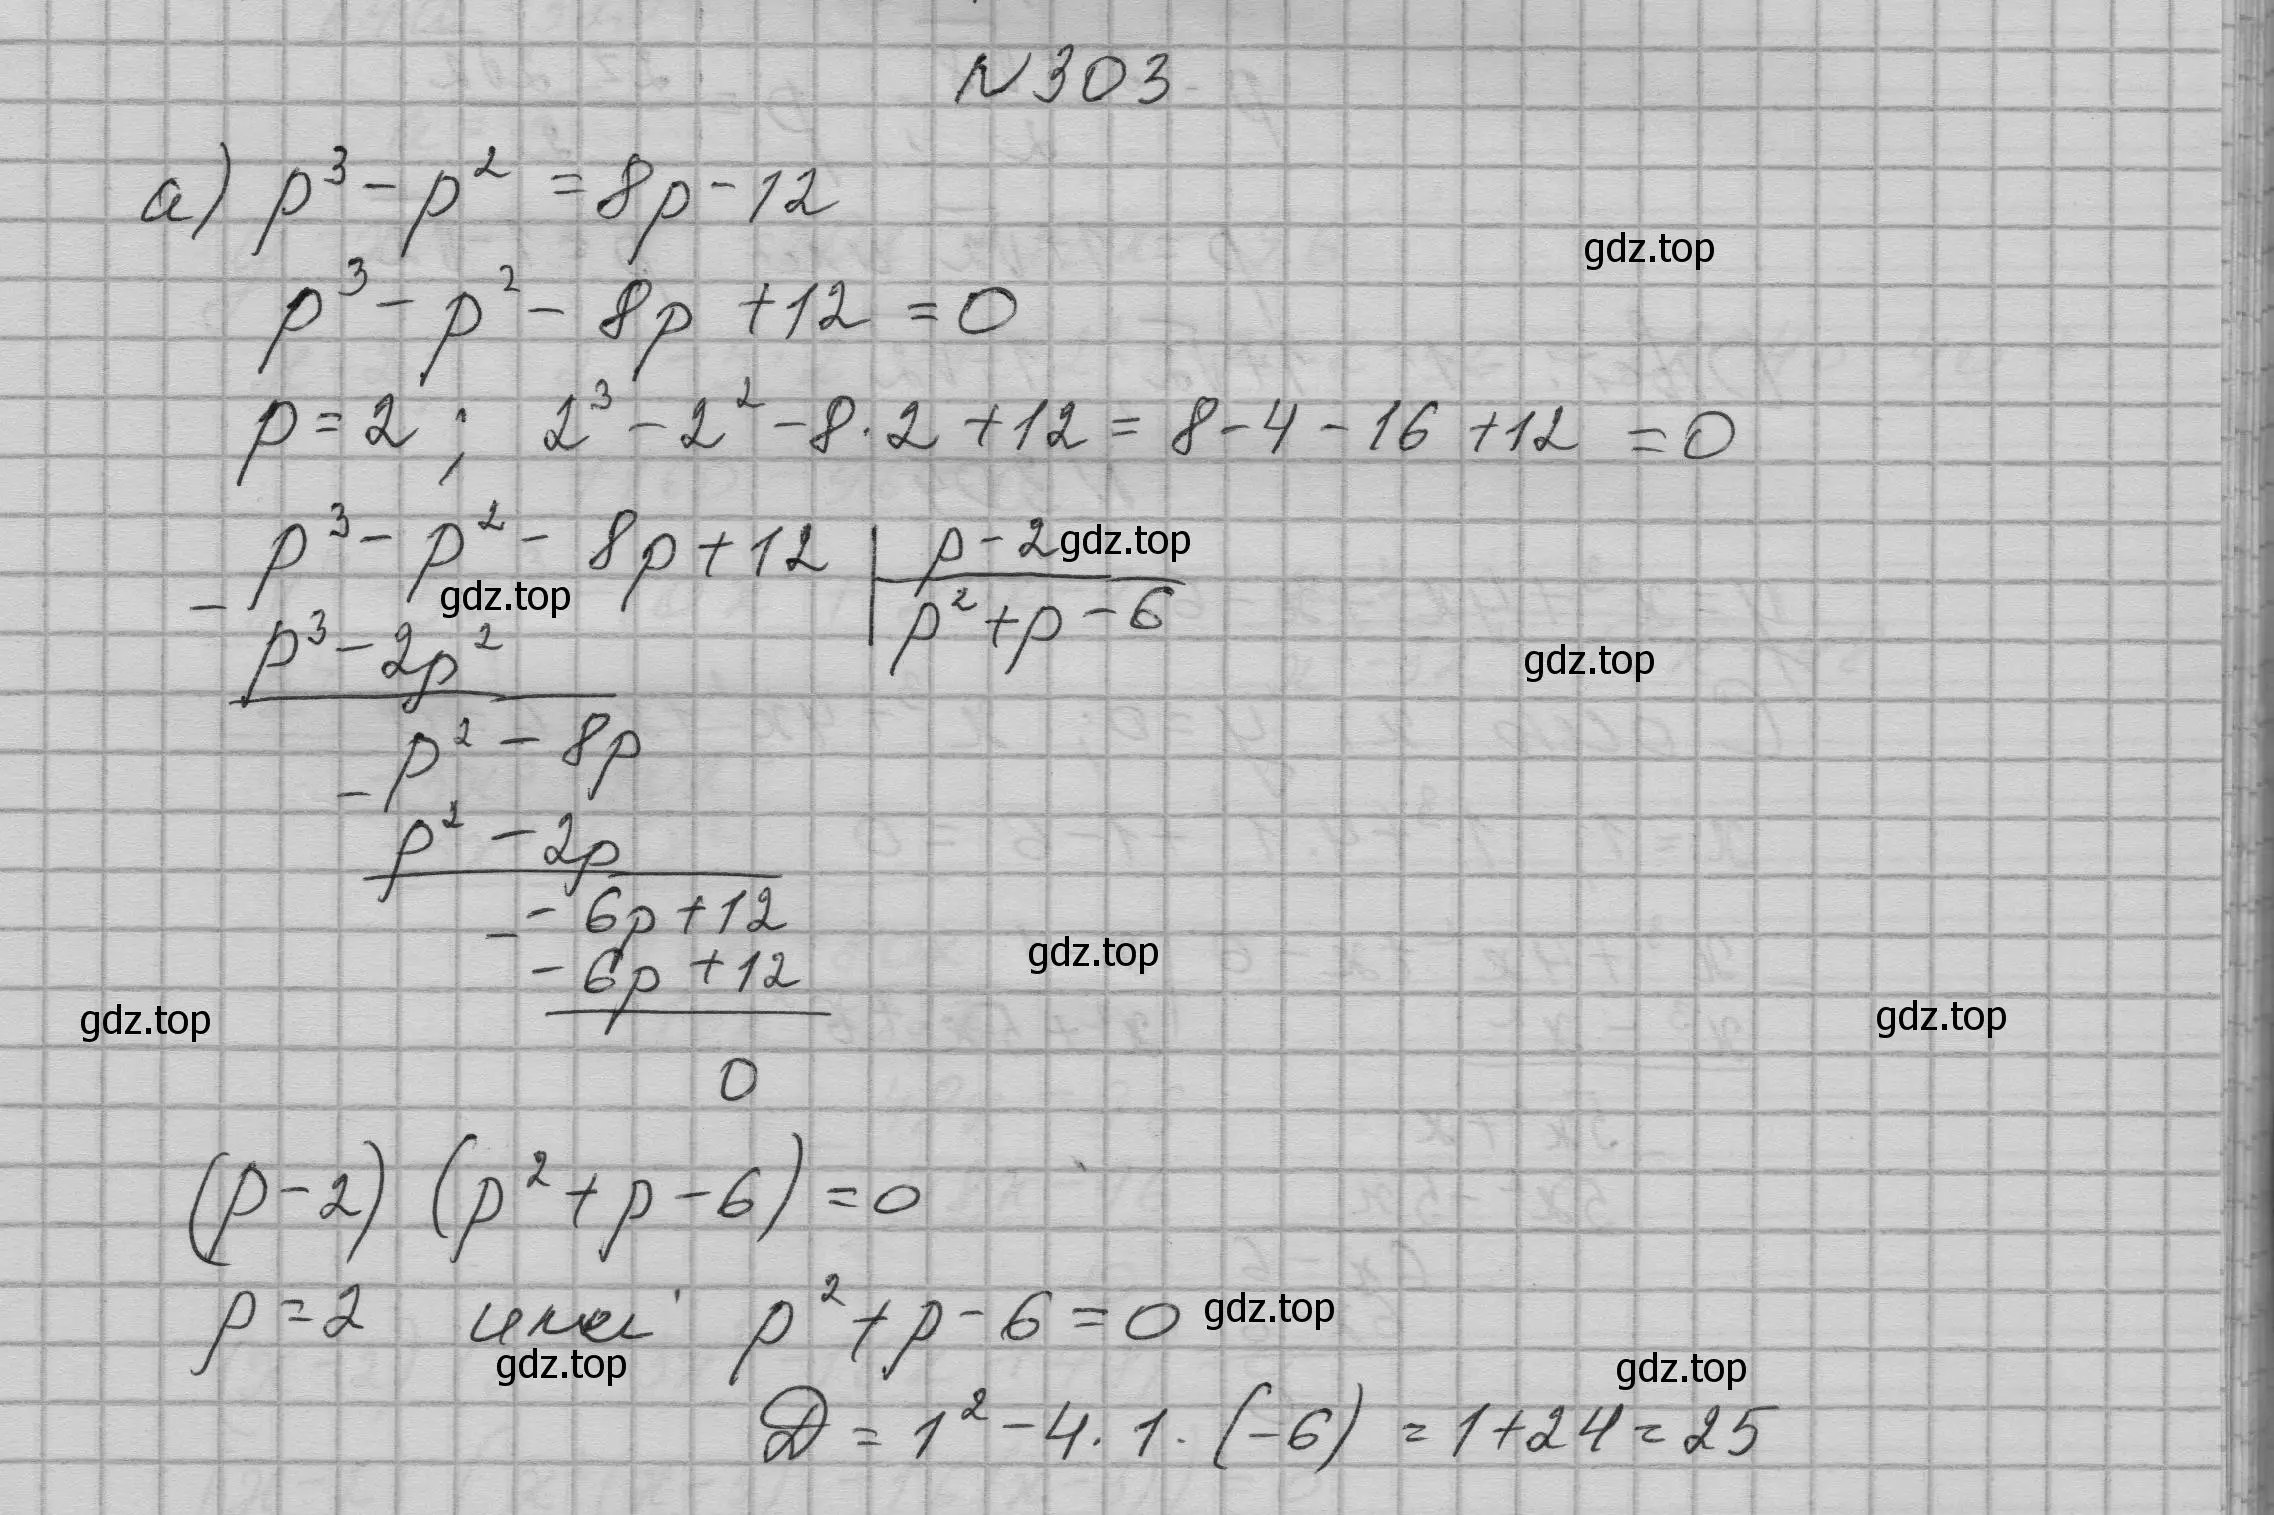 N303
а) p³ - p² = 8p - 12
gdz.top
p³ - p² - 8p + 12 = 0
p = 2 ; 2³ - 2² - 8·2 + 12 = 8 - 4 - 16 + 12 = 0
p³ - p² - 8p + 12 | p - 2
gdz.top
gdz.top
- p³ - 2p² | p² + p - 6
gdz.top
p² - 8p
- p² - 2p
- 6p + 12
- - 6p + 12
gdz.top
gdz.top
gdz.top
0
(p - 2) (p² + p - 6) = 0
p = 2 или p² + p - 6 = 0
gdz.top
gdz.top
gdz.top
D = 1² - 4·1·(-6) = 1 + 24 = 25